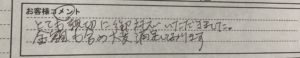 お客様コメント
とても親切に御対応いただきました。
金額も含め大変満足しております